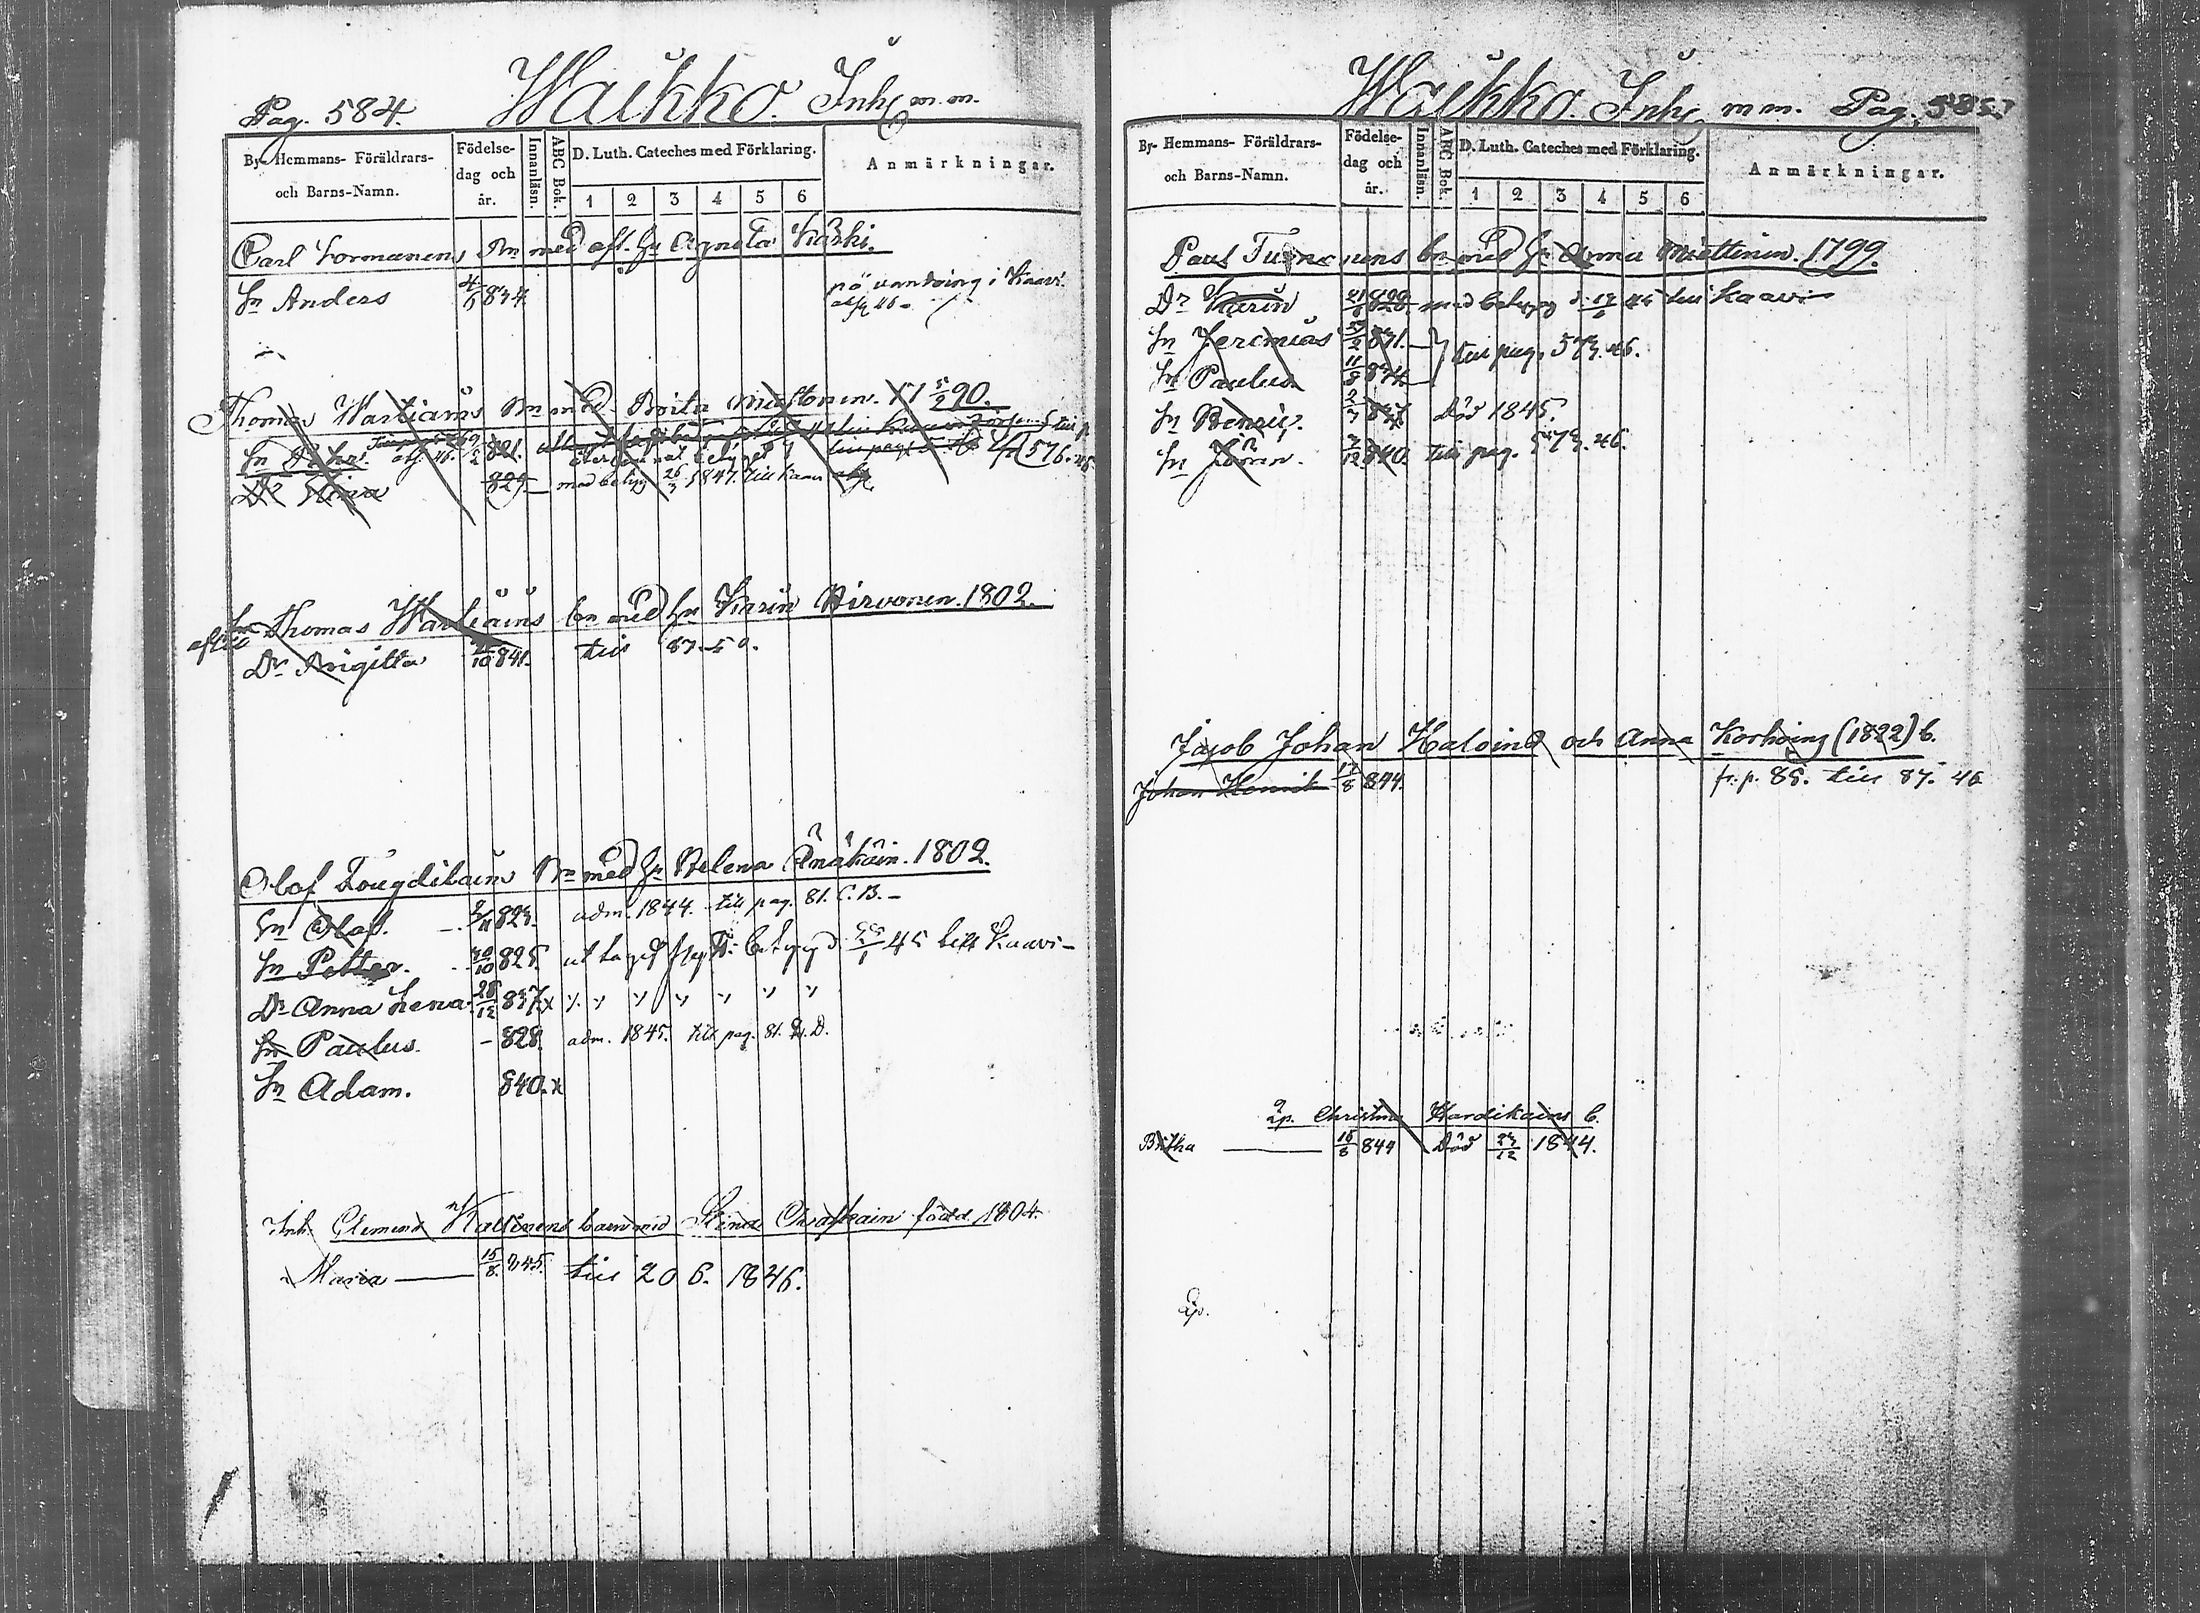 Pag. 584. Waikko. Inh. m.m.
By- Hemmans- Föräldrars- och Barns-Namn.
Födelse- dag och år.
Innanläsn.
ABC Bok.
D. Luth. Cateches med Förklaring.
1 2 3 4 5 6
Anmärkningar.
Carl Tormänens Bn med afl. hu Agneta Kärki.
Sn Anders 4/9 834. på vandring i Kaavi
Thomas Wartiains Bn med Brita Miettinen. 1 5/2 90.
Sn Pehr. 821. 576.
Dr Stina 829. med betyg 26/3 1847. till Kaavi
Thomas Wartiains bn med hu Karin Hirvonen. 1802.
Dr Brigitta 10 841. till 87. 50.
Olof Tougdikains Bn med hu Helena Änäkäin. 1802.
Sn Olof. 11 823. adm. 1844. till pag. 81. C.B.
Sn Petter. 20/10 825. uttagit flytt. betyg d. 45 till Kaavi
Dr Anna Lena. 28/12 837. x
Sn Paulus. 828. adm. 1845. till pag. 81. D.
Sn Adam. 840. x
Inh. Clemend barn med Stina född 1804.
Maria 15/8. 845. till 206. 1846.
Waikko. Inh. m m. Pag. 585.
By- Hemmans- Föräldrars- och Barns-Namn.
Födelse- dag och år.
Innanläsn.
ABC Bok.
D. Luth. Cateches med Förklaring.
1 2 3 4 5 6
Anmärkningar.
Paul bn med hu Anna Miettinen. 1799.
Dr Karin 828. med betyg d. 45 till Kaavi
Sn Jeremias 831. } till pag. 573. 46.
Sn Paulus 11/8 834.
Sn Bengt. 2/7 837. Död 1845.
Sn Göran. 2/12 840. till pag. 573. 46.
Jacob Johan Haloind och Anna Korhoins (1822) b.
Johan Henrik 17/8 844. fr. p. 88. till 87. 46
qp. Christina Hardikains b.
Britha 15/8 844 Död 24/12 1844.
qp.